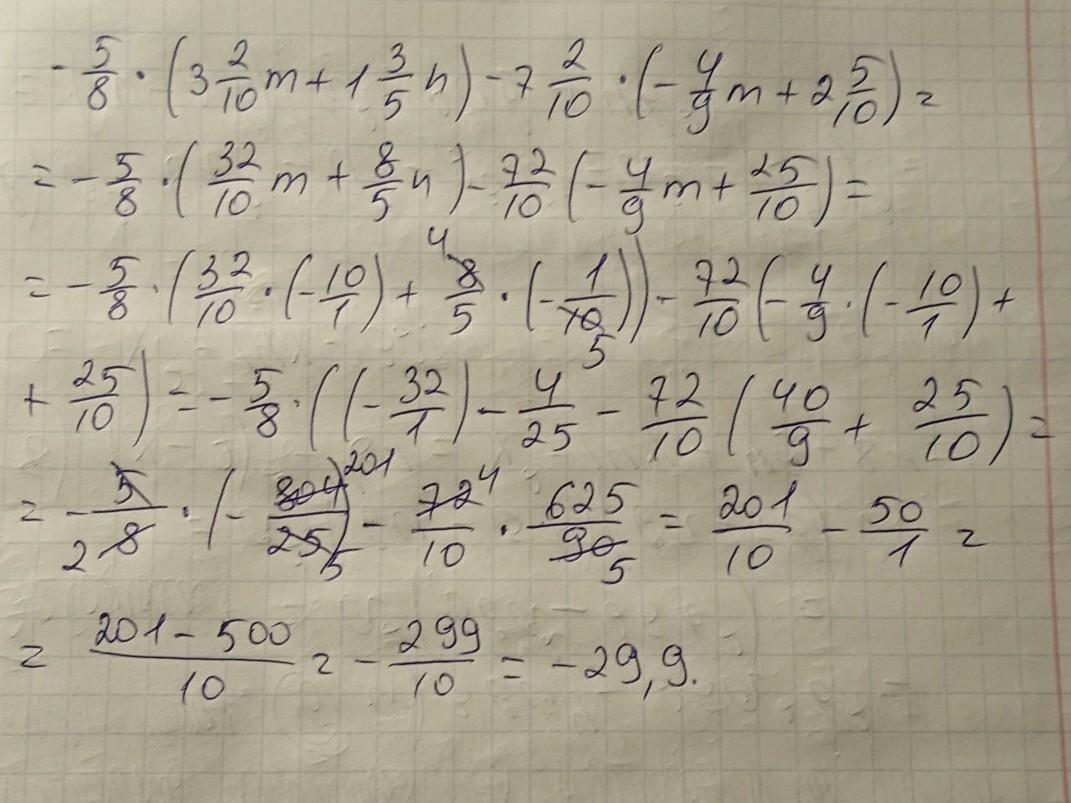 - 5/8 · (3 2/10 m + 1 3/5 n) - 7 2/10 · (- 4/9 m + 2 5/10) =
= - 5/8 · (32/10 m + 8/5 n) - 72/10 (- 4/9 m + 25/10) =
= - 5/8 · (32/10 · (- 10/1) + 8/5 4 · (- 1/10 5)) - 72/10 (- 4/9 · (- 10/1) +
+ 25/10) = - 5/8 · ((- 32/1) - 4/25 - 72/10 (40/9 + 25/10) =
= - 5/8 2 · (- 804/25) 201 5 - 72/10 4 · 625/90 5 = 201/10 - 50/1 =
= 201 - 500/10 = - 299/10 = - 29,9.